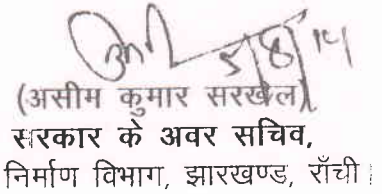 5/8/14
(असीम कुमार सरखेल)
सरकार के अवर सचिव,
निर्माण विभाग, झारखण्ड, राँची।